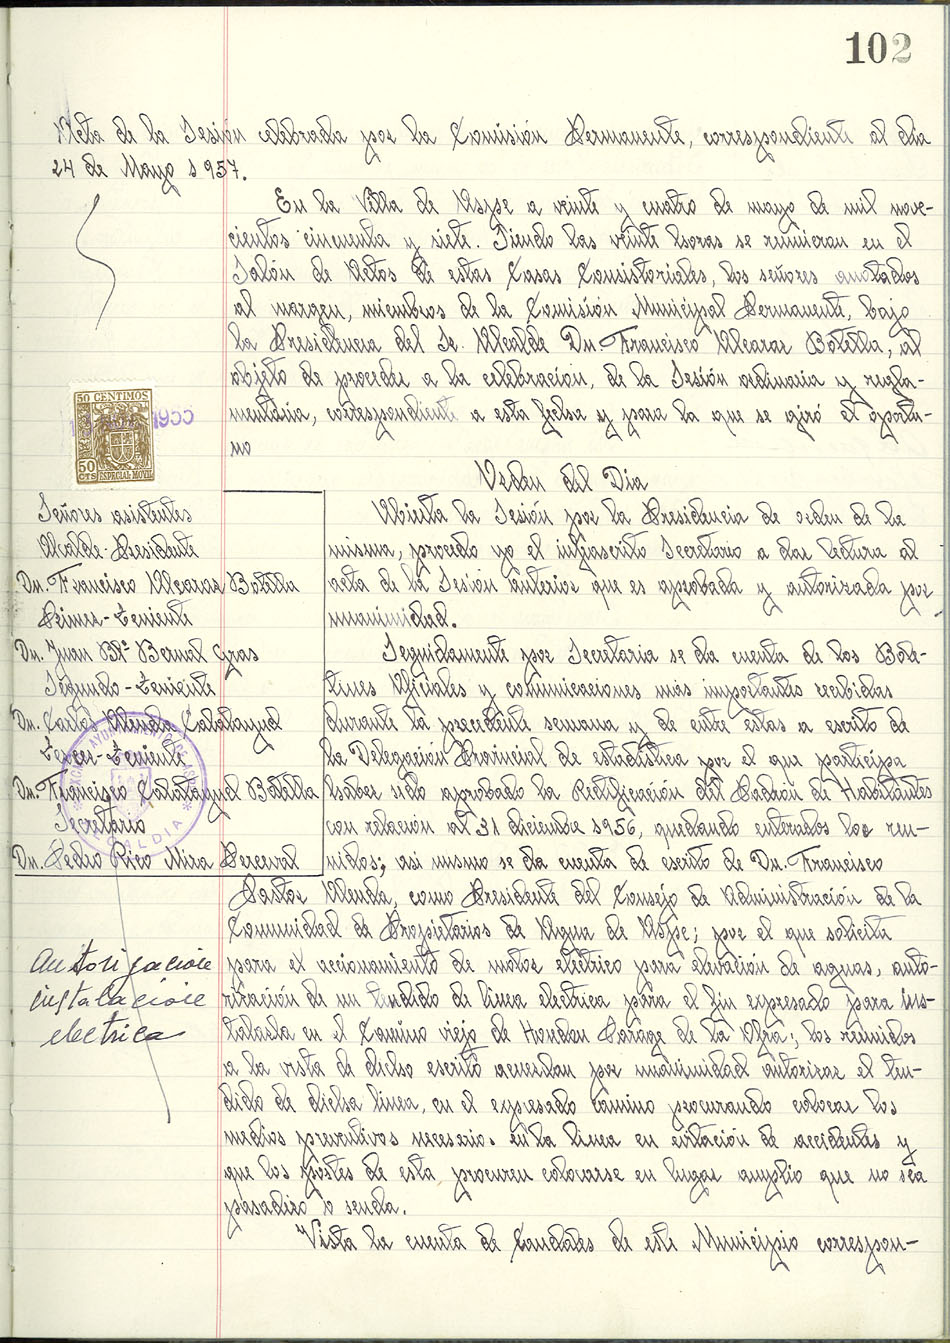 102
Acta de la Sesión celebrada por la Comisión Permanente, correspondiente al dia
24 de Mayo 1957.
En la Villa de Aspe a veinte y cuatro de mayo de mil nove-
cientos cincuenta y siete. Siendo las veinte horas se reunieron en el
Salón de Actos de estas Casas Consistoriales, los señores anotados
al margen, miembros de la Comisión Municipal Permanente, bajo
la Presidencia del Sr. Alcalde Dn. Francisco Alcaraz Botella, al
objeto de proceder a la celebración, de la Sesión ordinaria y regla-
mentaria, correspondiente a esta fecha y para la que se giró el oportu-
no
50 CENTIMOS
1955
50
CTS ESPECIAL MOVIL
Orden del Dia
Señores asistentes
Alcalde-Presidente
Dn. Francisco Alcaraz Botella
Primer-Teniente
Dn. Juan Bta Bernal Gras
Segundo-Teniente
Dn. Carlos Almodo Calatayud
Tercer-Teniente
Dn. Francisco Calatayud Botella
Secretario
Dn. Pedro Rico Mira Perceval
EXCMO AYUNTAMIENTO DE ASPE
ALCALDIA
Abierta la Sesión por la Presidencia de orden de la
misma, procedo yo el infrascrito Secretario a dar lectura al
acta de la Sesión anterior que es aprobada y autorizada por
unanimidad.
Seguidamente por Secretaria se da cuenta de los Bole-
tines Oficiales y comunicaciones más importantes recibidas
durante la precedente semana y de entre estas a escrito de
la Delegación Provincial de estadística por el que participa
haber sido aprobado la Rectificación del Padrón de Habitantes
con relación al 31 diciembre 1956, quedando enterados los reu-
nidos; asi mismo se da cuenta de escrito de Dn. Francisco
Pastor Almodo, como Presidente del Consejo de Administración de la
Comunidad de Propietarios de Agua de Aspe; por el que solicita
para el accionamiento de motor eléctrico para elevación de aguas, auto-
rización de un tendido de linea electrica para el fin expresado para ins-
talarla en el Camino viejo de Hondon Paraje de la Ofra; los reunidos
a la vista de dicho escrito acuerdan por unanimidad autorizar el ten-
dido de dicha linea, en el expresado camino procurando colocar los
medios preventivos necesarios en la linea en evitación de accidentes y
que los postes de esta procuren colocarse en lugar amplio que no sea
pasadizo o senda.
Autorizacion
instalacion
electrica
Vista la cuenta de Caudales de este Municipio correspon-